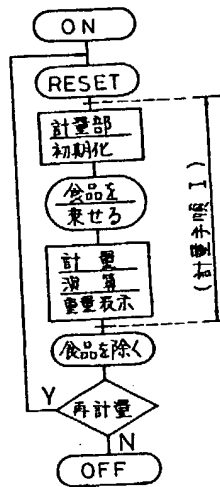 ON
RESET
計量部
初期化
食品を
乗せる
計量
演算
重量表示
(計量手順 I)
食品を除く
Y
再計量
N
OFF